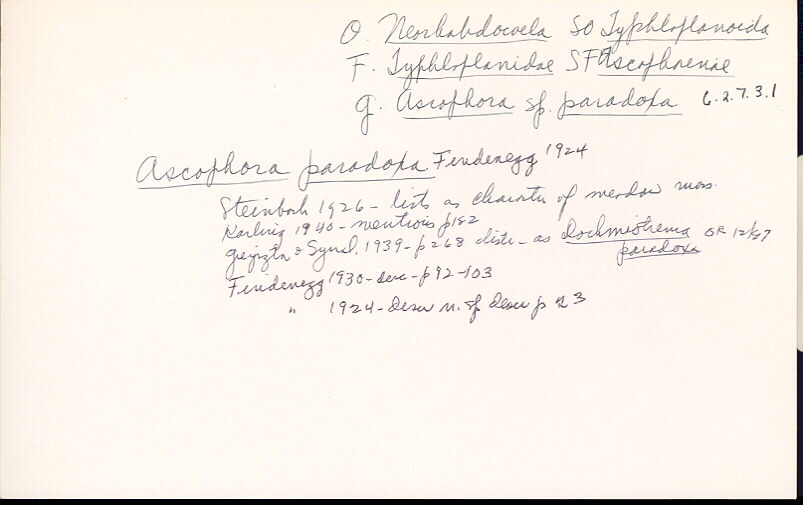 O. Neorhabdocoela SO Typhloplanoida
F. Typhloplanidae SF Ascophorinae
g. Ascophora sp. paradoxa 6.2.7.3.1
Ascophora paradoxa Findenegg 1924
Steinbock 1926 - lists as character of meadow moss.
Karling 1940 - mentions p182
& Synal. 1939 - p268 distr - as Dochmiotrema OR 12/57
paradoxa
Findenegg 1930 - desc - p92-103
" 1924 - Descr n. sp descr p 23